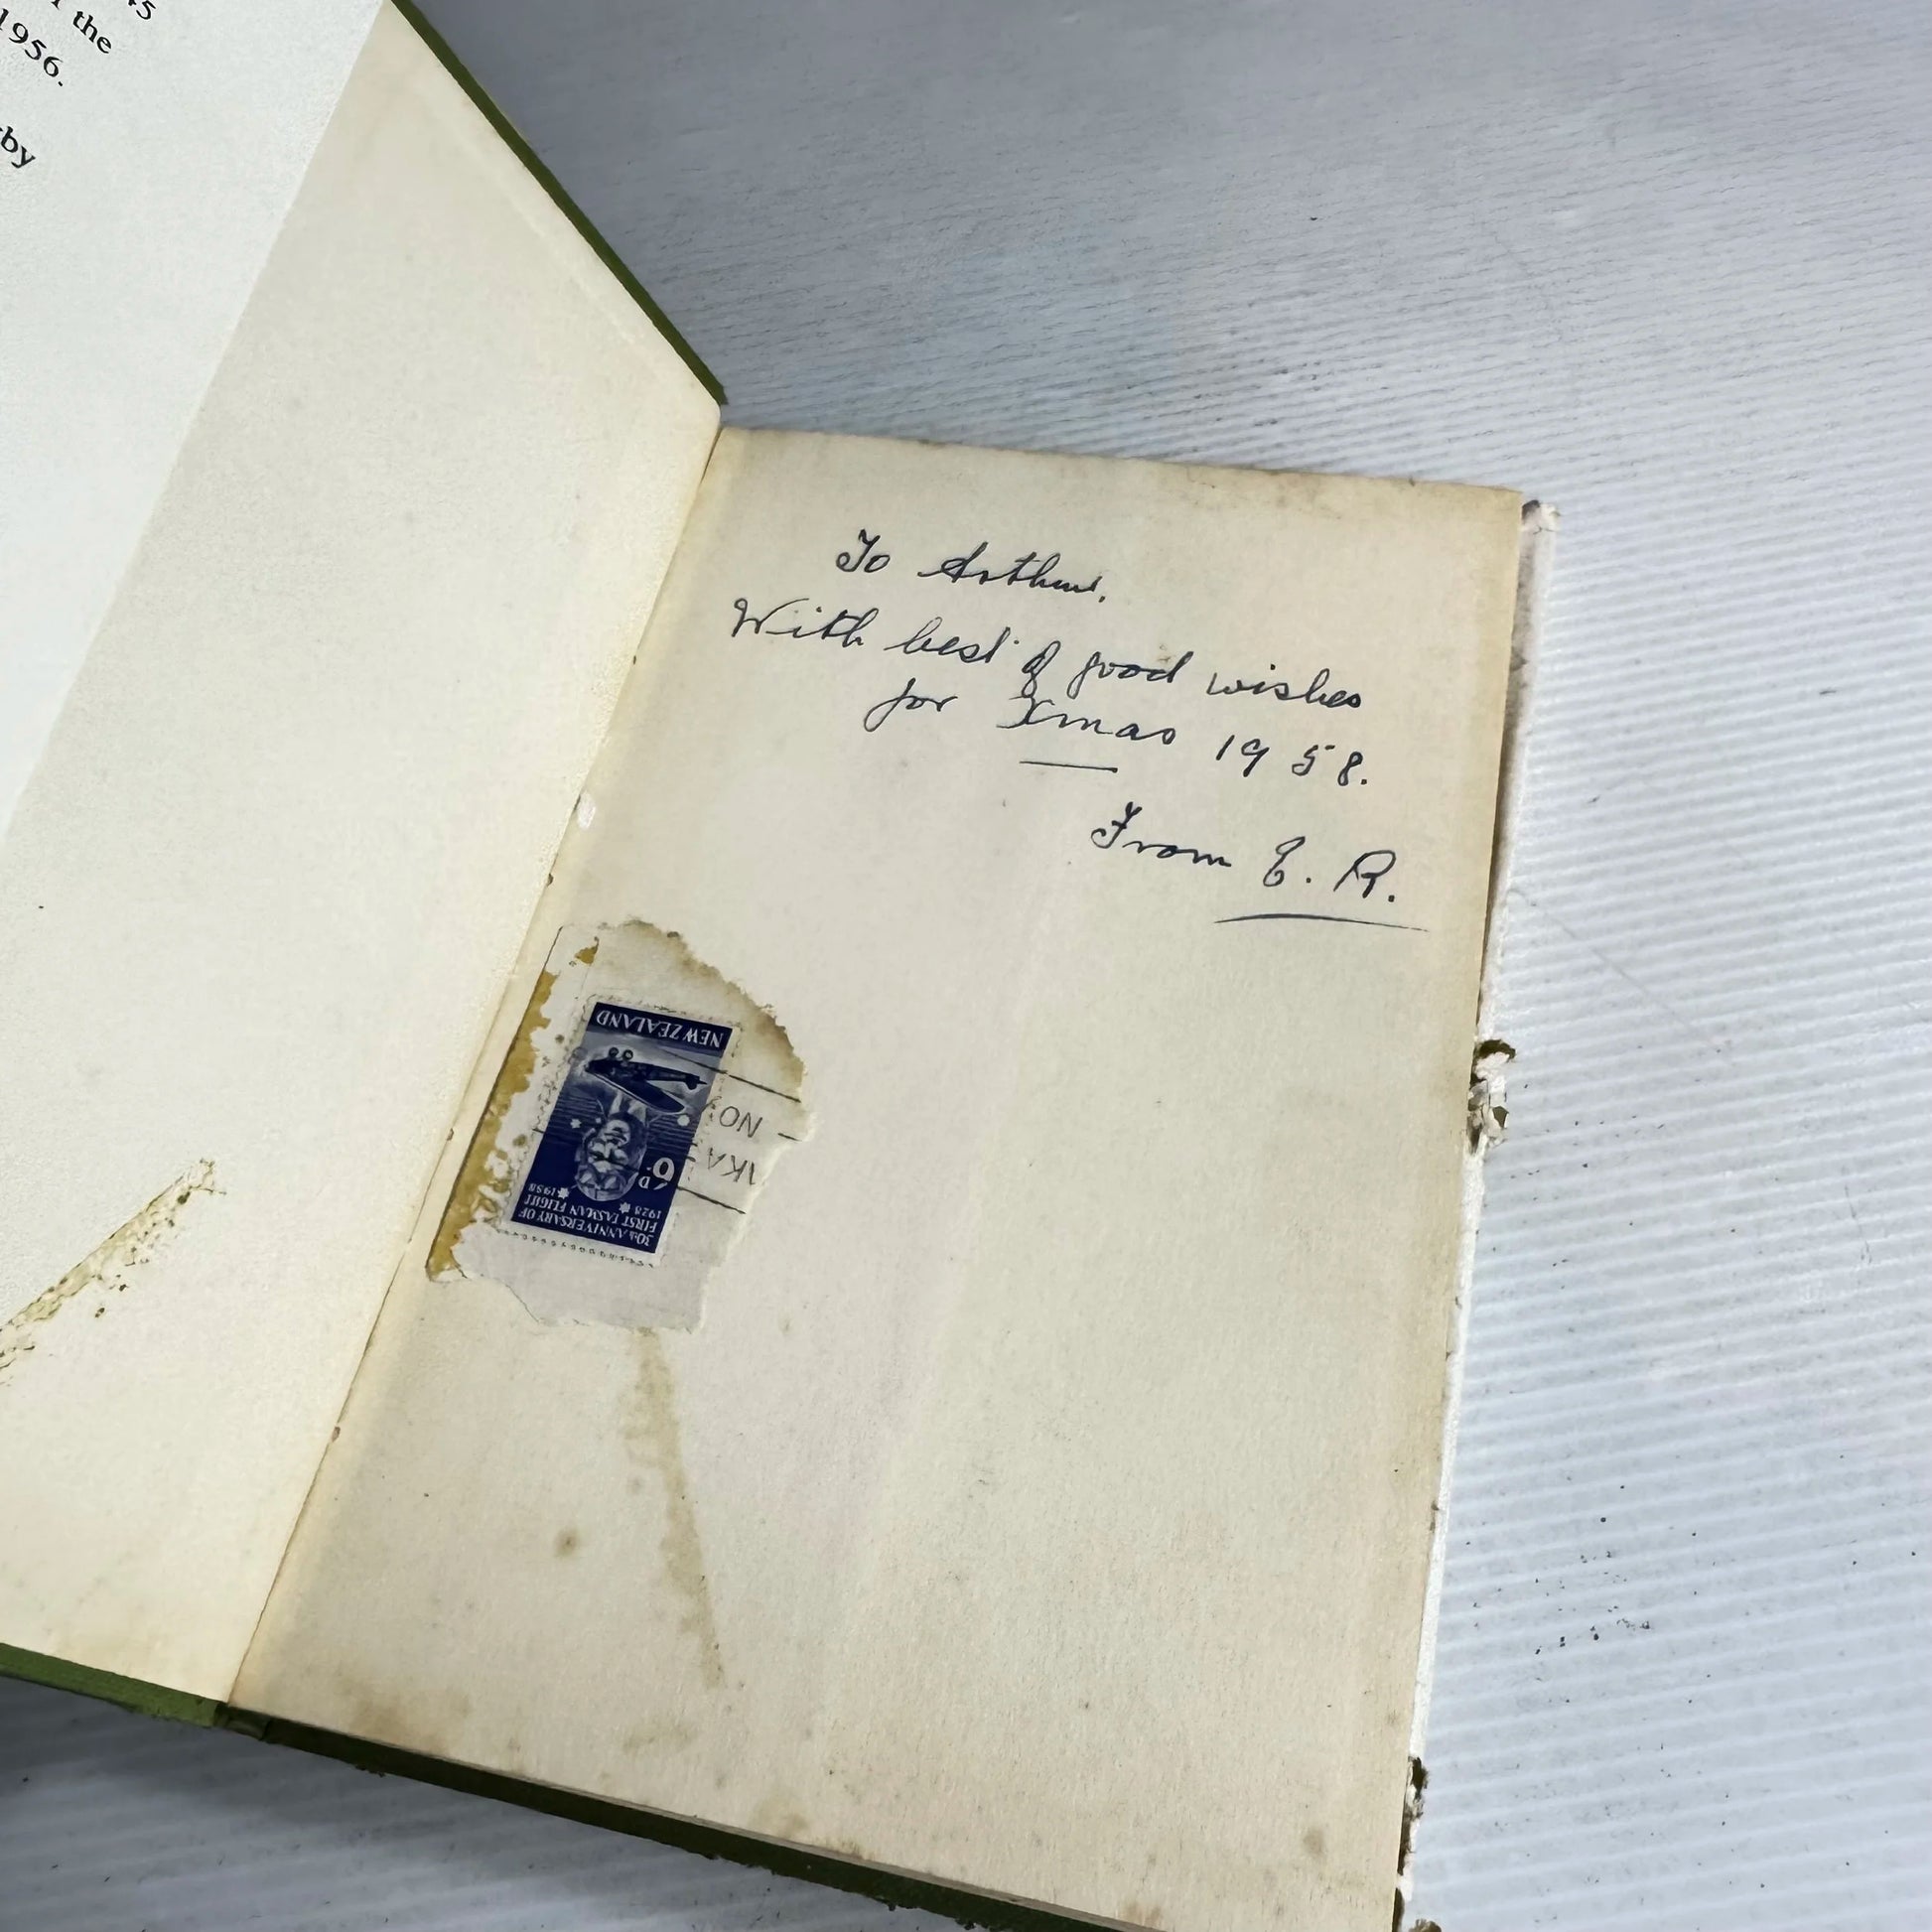 45
the
1956.
by
To Arthur.
With best of good wishes
for Xmas 1958.
From E. R.
NEW ZEALAND
6D
1928 1958
30th ANNIVERSARY OF
FIRST TASMAN FLIGHT
NO
KA